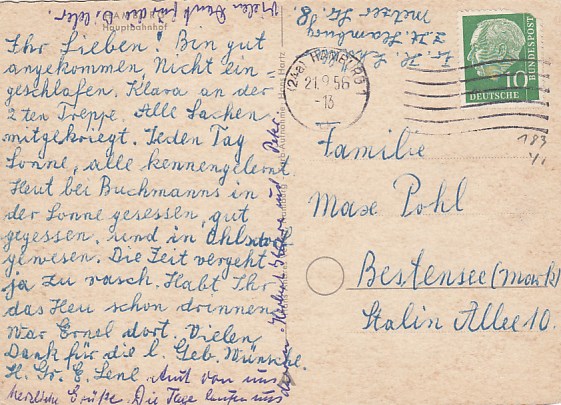 HAMBURG
Hauptbahnhof
Vielen Dank für die l. Feder.
Ihr Lieben! Bin gut
angekommen, Nicht ein-
geschlafen. Klara an der
2ten Treppe. Alle Sachen
mitgekriegt. Jeden Tag
Sonne, alle kennengelernt
Heut bei Buchmanns in
der Sonne gesessen, gut
gegessen, und in Ohlsdorf
gewesen. Die Zeit vergeht
ja zu rasch. Habt Ihr
das Heu schon drinnen
War Ernel dort. Vielen
Dank für die l. Geb. Wünsche.
H. Gr. E. Lene Auch von uns
herzliche Grüße. Die Tage laufen uns
davon. Klara und Peter.
H.
z. Zt. Hamburg
Metzer Str. 8
(24a) HAMBURG
21.9.56
-13
10
DEUTSCHE
BUNDESPOST
183
Familie
Max Pohl
Bestensee (Mark)
Stalin Allee 10.